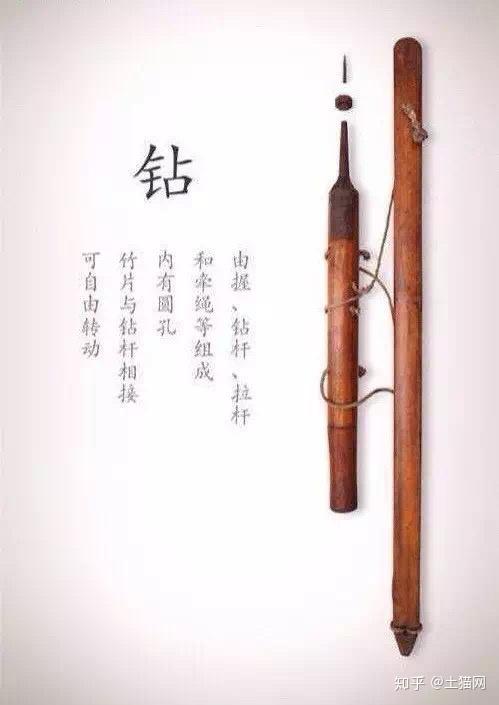 钻
由握、钻杆、拉杆
和牵绳等组成
内有圆孔
竹片与钻杆相接
可自由转动
知乎 @土猫网